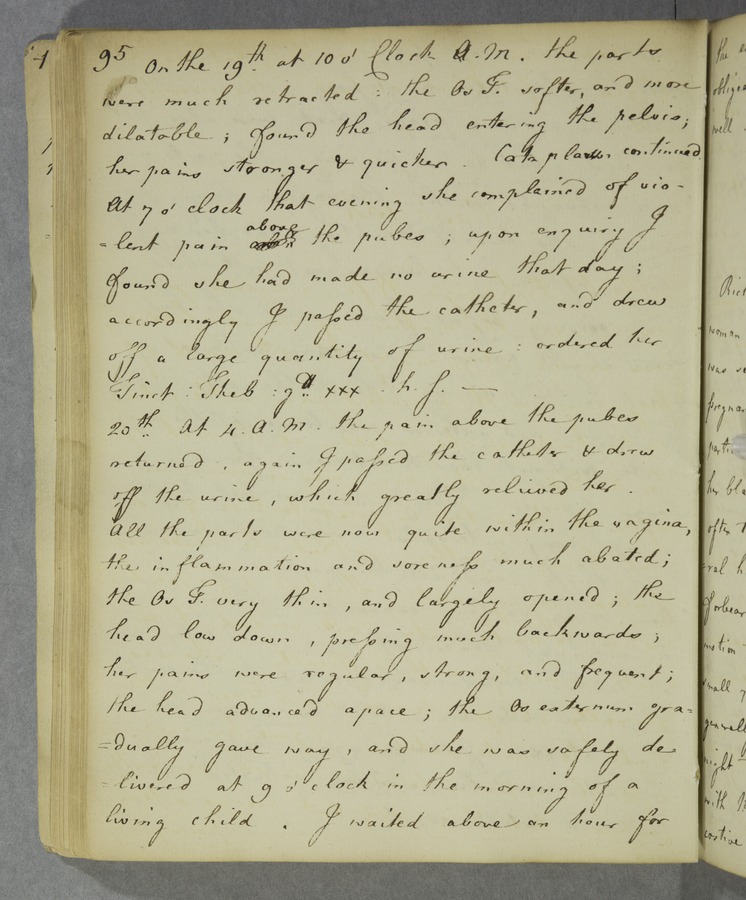 95 On the 19th. at 10 o' Clock A.M. the parts
were much retracted : the Os T. softer, and more
dilatable ; found the head entering the pelvis;
her pains stronger & quicker. Cataplasm continued
At 7 o' clock that evening she complained of vio-
=lent pain above the pubes ; upon enquiry I
found she had made no urine that day ;
accordingly I passed the catheter, and drew
off a large quantity of urine : ordered her
Tinct : Theb : gtt xxx . h. s. —
20th. At 4. A.M. the pain above the pubes
returned, again I passed the catheter & drew
off the urine, which greatly relieved her.
All the parts were now quite within the vagina,
the inflammation and soreness much abated;
the Os T. very thin, and largely opened ; the
head low down, pressing much backwards ;
her pains were regular, strong, and frequent ;
the head advanced apace ; the Os externum gra=
=dually gave way, and she was safely de
=livered at 9 o' clock in the morning of a
living child. I waited above an hour for